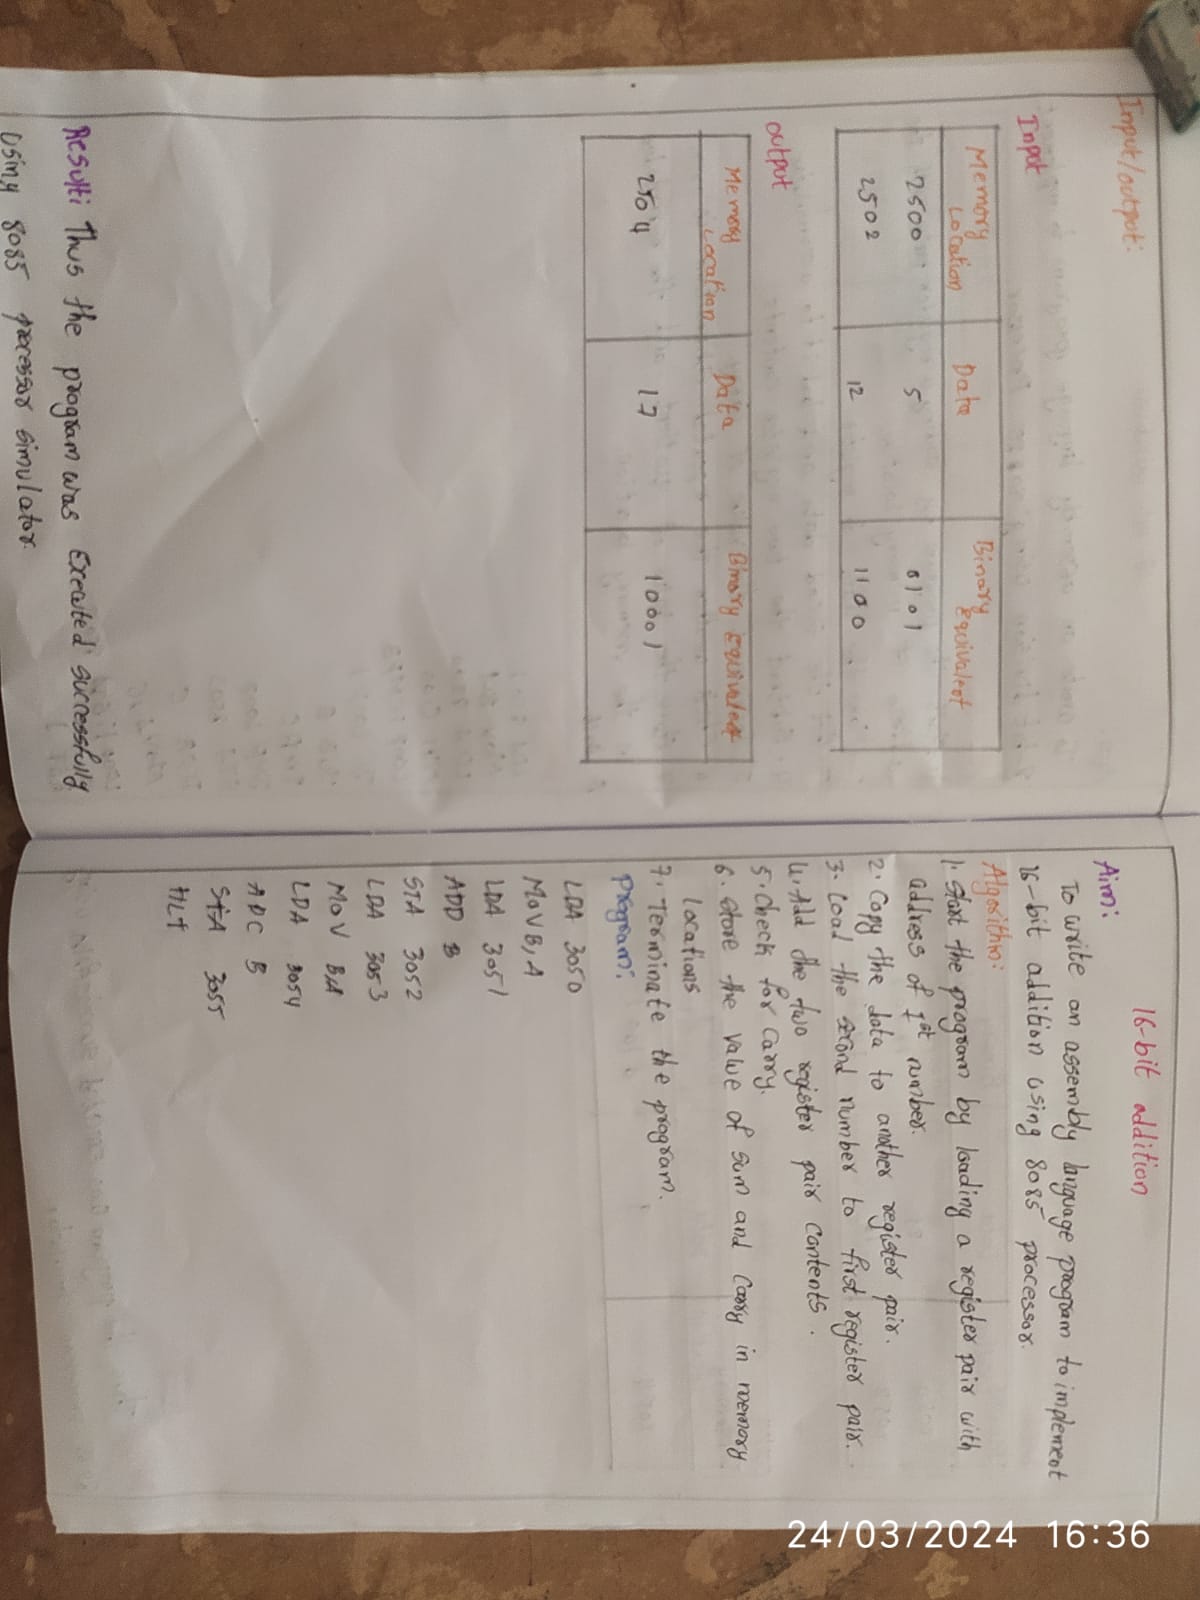 Input/output:
Input
Memory Location Data Binary equivalent
2500 5 0101
2502 12 1100
output
Memory Location Data Binary Equivalent
2504 17 10001
Result: Thus the program was Executed successfully
Using 8085 processor simulator.
16-bit addition
Aim:
To write an assembly language program to implement
16-bit addition using 8085 processor.
Algorithm:
1. Start the program by loading a register pair with
address of 1st number.
2. Copy the data to another register pair.
3. Load the second number to first register pair.
4. Add the two register pair contents.
5. Check for carry.
6. Store the value of sum and carry in memory
locations
7. Terminate the program.
Program:
LDA 3050
MOV B,A
LDA 3051
ADD B
STA 3052
LDA 3053
MOV B,A
LDA 3054
ADC B
STA 3055
HLT
24/03/2024 16:36